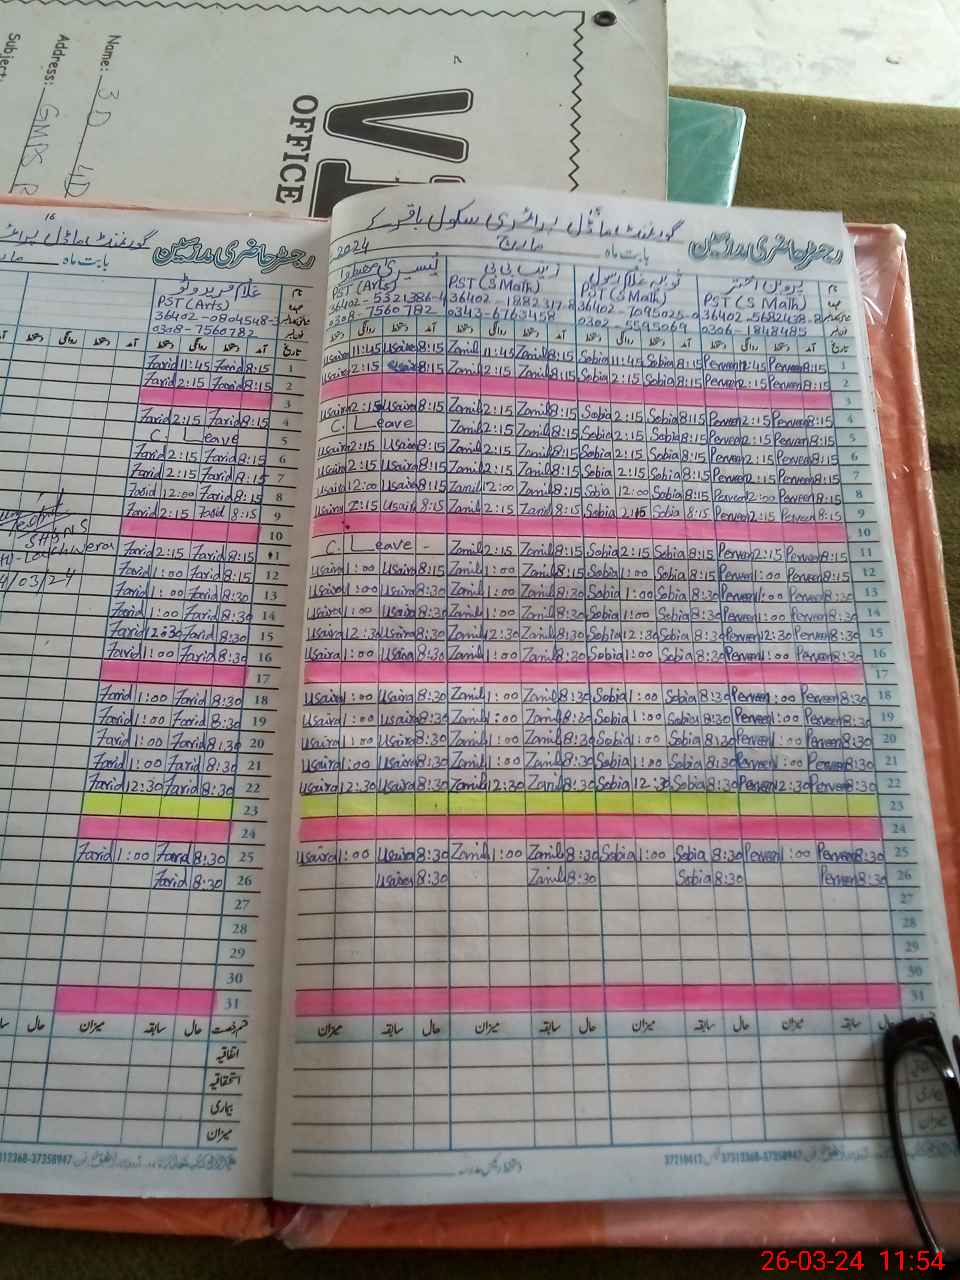 Name: 3D
Address: GMPS
Subject:
OFFICE
16
رجسٹر حاضری مدرسین
بابت ماہ
PST (Arts)
0308-7560782
Farid 11:45 Farid 8:15 1
Farid 2:15 Farid 8:15 2
3
Farid 2:15 Farid 8:15 4
C. Leave 5
Farid 2:15 Farid 8:15 6
Farid 2:15 Farid 8:15 7
Farid 12:00 Farid 8:15 8
Farid 2:15 Farid 8:15 9
10
Farid 2:15 Farid 8:15 11
Farid 1:00 Farid 8:15 12
Farid 1:00 Farid 8:30 13
Farid 1:00 Farid 8:30 14
Farid 12:30 Farid 8:30 15
Farid 1:00 Farid 8:30 16
17
Farid 1:00 Farid 8:30 18
Farid 1:00 Farid 8:30 19
Farid 1:00 Farid 8:30 20
Farid 1:00 Farid 8:30 21
Farid 12:30 Farid 8:30 22
23
24
Farid 1:00 Farid 8:30 25
Farid 8:30 26
27
28
29
30
31
میزان سابقہ حال
اتفاقیہ
استحقاقیہ
بیماری
میزان
گورنمنٹ ماڈل پرائمری سکول
رجسٹر حاضری مدرسین بابت ماہ مارچ 2024
PST (Arts) PST (S Math) PST (S Math) PST (S Math)
0308-7560782 0343-6763458 0302-5595069 0306-1848485
Usaira 11:45 Usaira 8:15 Zanib 11:45 Zanib 8:15 Sobia 11:45 Sobia 8:15 Perveen 11:45 Perveen 8:15 1
Usaira 2:15 Usaira 8:15 Zanib 2:15 Zanib 8:15 Sobia 2:15 Sobia 8:15 Perveen 2:15 Perveen 8:15 2
3
Usaira 2:15 Usaira 8:15 Zanib 2:15 Zanib 8:15 Sobia 2:15 Sobia 8:15 Perveen 2:15 Perveen 8:15 4
C. Leave Zanib 2:15 Zanib 8:15 Sobia 2:15 Sobia 8:15 Perveen 2:15 Perveen 8:15 5
Usaira 2:15 Usaira 8:15 Zanib 2:15 Zanib 8:15 Sobia 2:15 Sobia 8:15 Perveen 2:15 Perveen 8:15 6
Usaira 2:15 Usaira 8:15 Zanib 2:15 Zanib 8:15 Sobia 2:15 Sobia 8:15 Perveen 2:15 Perveen 8:15 7
Usaira 12:00 Usaira 8:15 Zanib 12:00 Zanib 8:15 Sobia 12:00 Sobia 8:15 Perveen 12:00 Perveen 8:15 8
Usaira 2:15 Usaira 8:15 Zanib 2:15 Zanib 8:15 Sobia 2:15 Sobia 8:15 Perveen 2:15 Perveen 8:15 9
10
C. Leave - Zanib 2:15 Zanib 8:15 Sobia 2:15 Sobia 8:15 Perveen 2:15 Perveen 8:15 11
Usaira 1:00 Usaira 8:15 Zanib 1:00 Zanib 8:15 Sobia 1:00 Sobia 8:15 Perveen 1:00 Perveen 8:15 12
Usaira 1:00 Usaira 8:30 Zanib 1:00 Zanib 8:30 Sobia 1:00 Sobia 8:30 Perveen 1:00 Perveen 8:30 13
Usaira 1:00 Usaira 8:30 Zanib 1:00 Zanib 8:30 Sobia 1:00 Sobia 8:30 Perveen 1:00 Perveen 8:30 14
Usaira 12:30 Usaira 8:30 Zanib 12:30 Zanib 8:30 Sobia 12:30 Sobia 8:30 Perveen 12:30 Perveen 8:30 15
Usaira 1:00 Usaira 8:30 Zanib 1:00 Zanib 8:30 Sobia 1:00 Sobia 8:30 Perveen 1:00 Perveen 8:30 16
17
Usaira 1:00 Usaira 8:30 Zanib 1:00 Zanib 8:30 Sobia 1:00 Sobia 8:30 Perveen 1:00 Perveen 8:30 18
Usaira 1:00 Usaira 8:30 Zanib 1:00 Zanib 8:30 Sobia 1:00 Sobia 8:30 Perveen 1:00 Perveen 8:30 19
Usaira 1:00 Usaira 8:30 Zanib 1:00 Zanib 8:30 Sobia 1:00 Sobia 8:30 Perveen 1:00 Perveen 8:30 20
Usaira 1:00 Usaira 8:30 Zanib 1:00 Zanib 8:30 Sobia 1:00 Sobia 8:30 Perveen 1:00 Perveen 8:30 21
Usaira 12:30 Usaira 8:30 Zanib 12:30 Zanib 8:30 Sobia 12:30 Sobia 8:30 Perveen 12:30 Perveen 8:30 22
23
24
Usaira 1:00 Usaira 8:30 Zanib 1:00 Zanib 8:30 Sobia 1:00 Sobia 8:30 Perveen 1:00 Perveen 8:30 25
Usaira 8:30 Zanib 8:30 Sobia 8:30 Perveen 8:30 26
27
28
29
30
31
میزان سابقہ حال میزان سابقہ حال میزان سابقہ حال میزان سابقہ حال
26-03-24 11:54